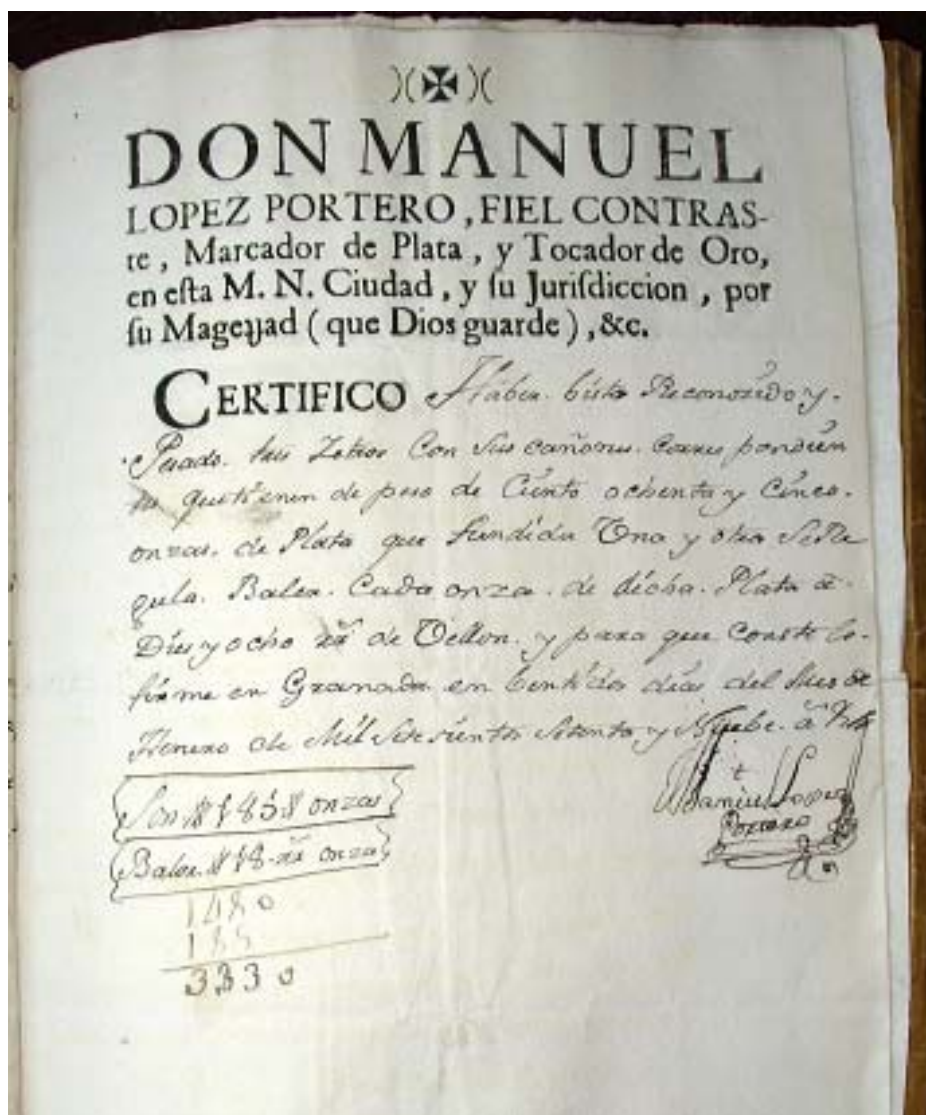 )(✠)(
DON MANUEL
LOPEZ PORTERO, FIEL CONTRAS-
te, Marcador de Plata, y Tocador de Oro,
en eſta M. N. Ciudad, y ſu Juriſdiccion, por
ſu Mageyad (que Dios guarde), &c.
CERTIFICO Haber bisto Reconozido y
Pesado tres Zetros Con Sus cañones Corres pondien
tes que tienen de peso de Ciento ochenta y Cinco
onzas de Plata que fundida Una y otra Se Re
gula Baler Cada onza de dicha Plata a
Dies y ocho rrs de Vellon y para que Conste lo
firme en Granada en benti dos dias del Mes de
Henero de Mil Sete sientos Setenta y Nuebe a
Manuel Lopez
Portero
Son 185 onzas
Balor 18 rrs onza
1480
185
3330